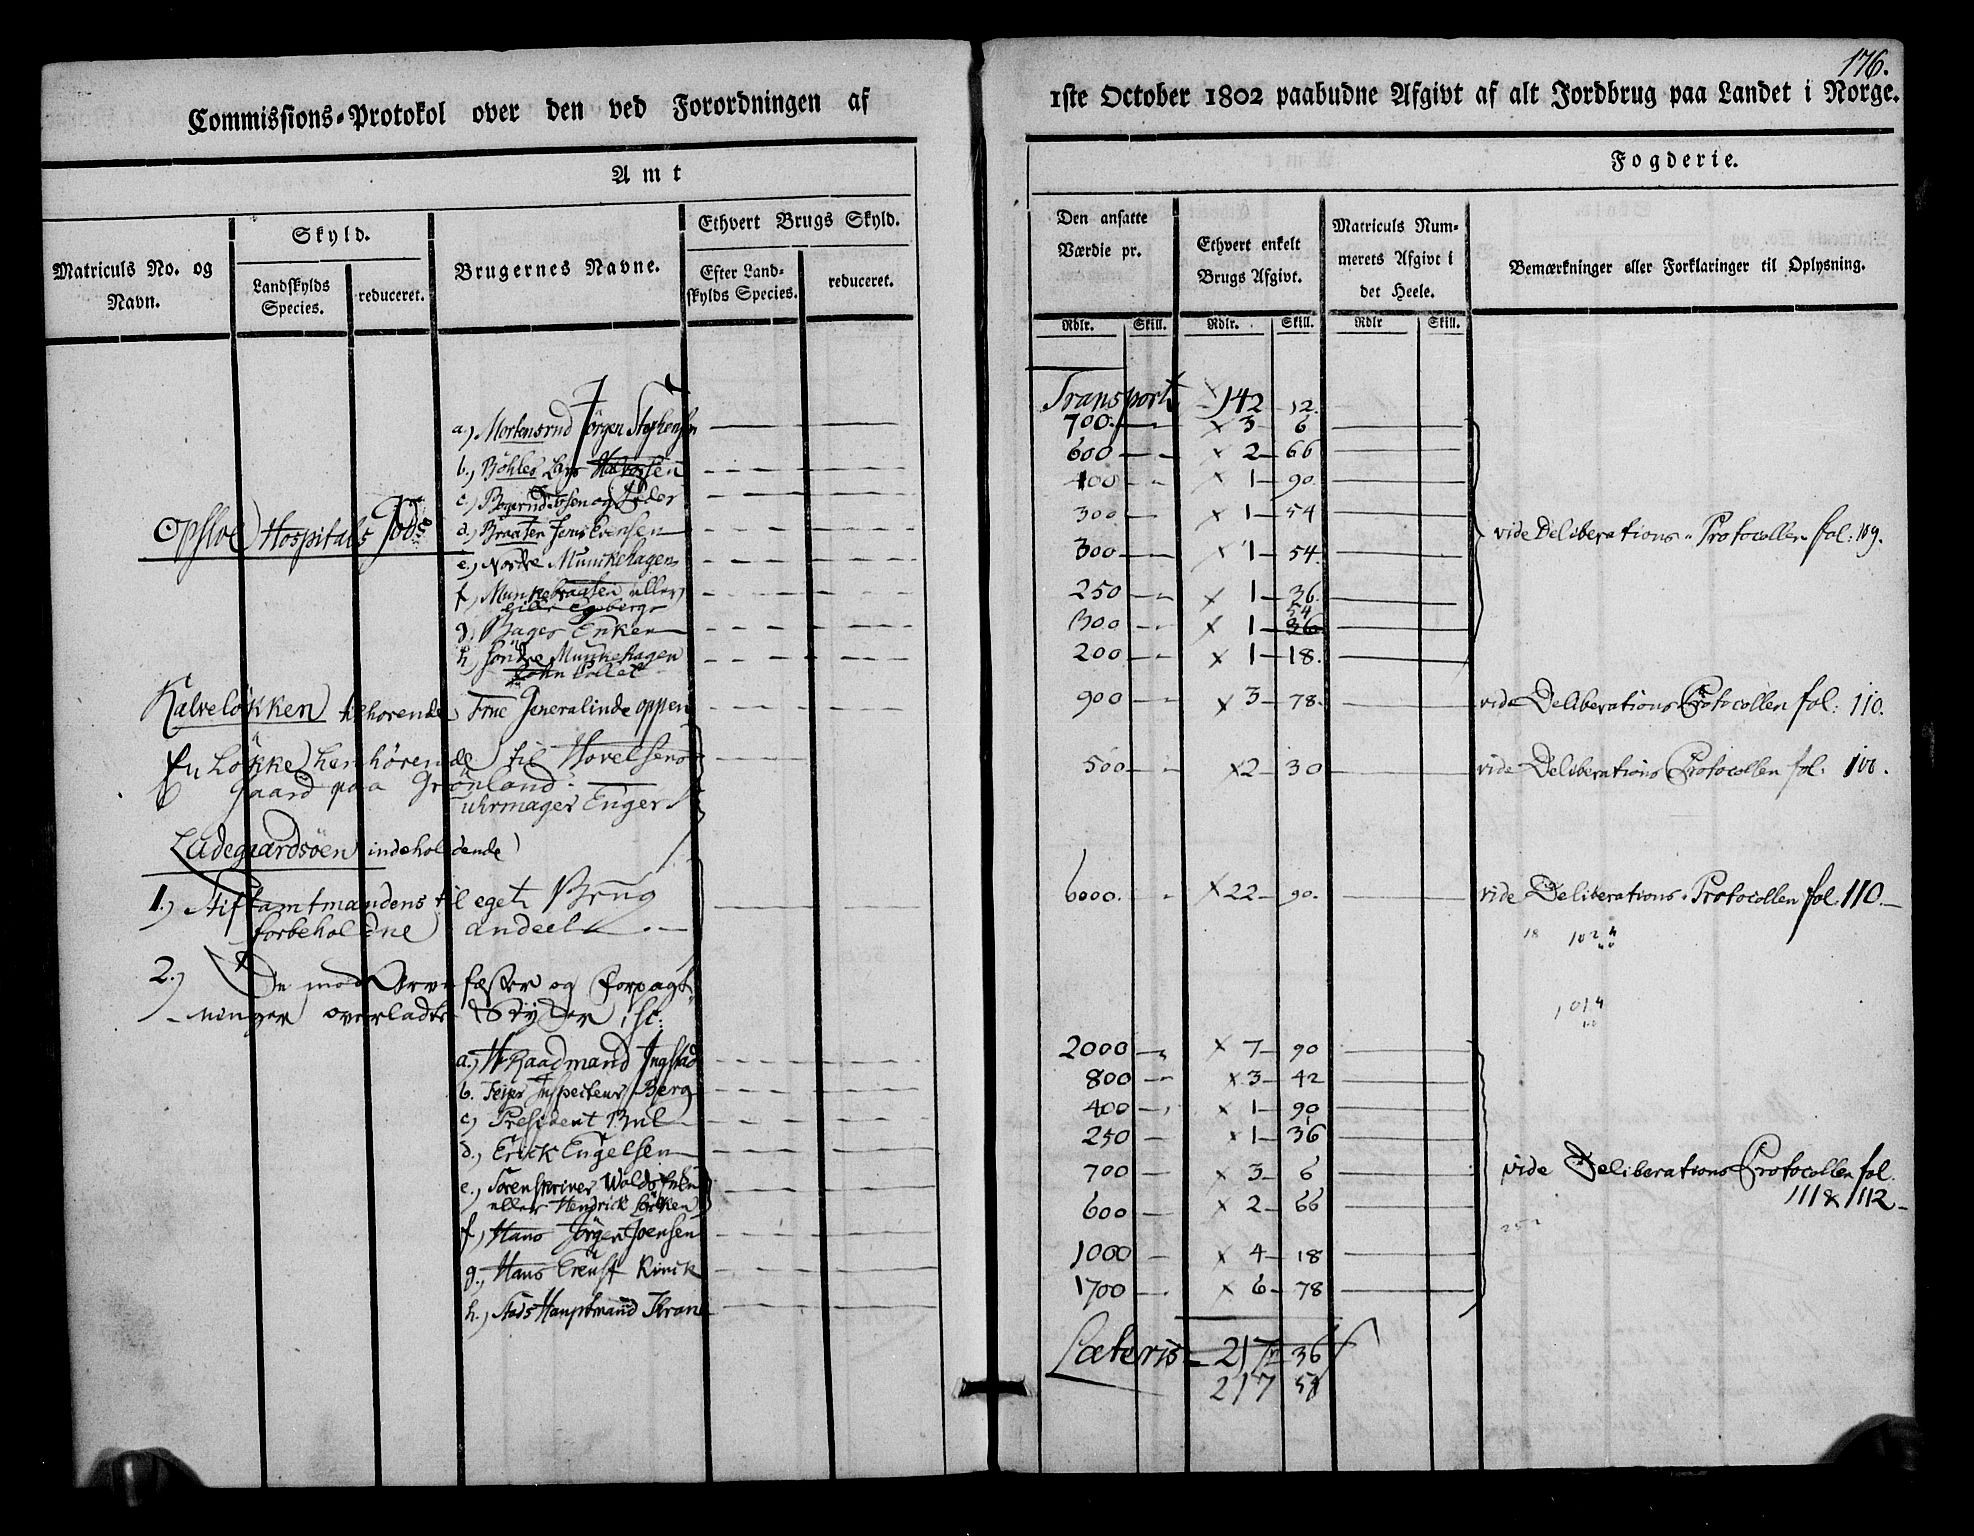 176.
Commissions-Protokol over den ved Forordningen af
1ste October 1802 paabudne Afgivt af alt Jordbrug paa Landet i Norge.
Amt
Fogderie.
Matriculs No. og Navn.
Skyld.
Landskylds Species.
reduceret.
Brugernes Navne.
Ethvert Brugs Skyld.
Efter Landskylds Species.
reduceret.
Den ansatte Værdie pr.
Ethvert enkelt Brugs Afgivt.
Matriculs Nummerets Afgivt i det Heele.
Bemærkninger eller Forklaringer til Oplysning.
Rdlr. Skill. Rdlr. Skill. Rdlr Skill.
Transport x 142 12.
a) Mortensrud Jörgen Stephensen 700 x 3 6
b) Böhler Lars Halvorsen 600 x 2 66
c) Bogerud og Peder 400 x 1 90
Opsloe Hospitals Gods
d) Braaten Jens Evensen 300 x 1 54
vide Deliberations-Protocollen fol: 109.
e) Nordre Munckehagen 300 x 1 54.
f) Munkebraaten eller 250 x 1 36.
lille Egeberg
g) Bager Enken 300 x 1 36 54
h) Söndre Munkehagen 200 x 1 18.
John Collet
Kalvelökken tilhørende Frue Generalinde oppen 900 x 3 78. vide Deliberations Protocollen fol: 110.
En Løkke henhørende til Hovelsens 500 x 2 30 vide Deliberations Protocollen fol: 100.
Gaard paa Grønland:
uhrmager Enger
Ladegaardsöen indeholdende
1.) Stiftamtmandens til eget Brug 6000. x 22 90. vide Deliberations-Protocollen fol. 110.
forbeholdne andeel
18 1024
2.) De mod Arvefæster og Forpagt-
ninger overladte Stykker, sc:
1014
a.) H Raadmand Ingstad 2000 x 7 90
b. Veyer Inspecteur Berg 800 x 3 42
c) President Bul 400 x 1 90
d.) Erick Engelsen 250 x 1 36
e.) Sorenskriver Wolds Enke 700 x 3 6
vide Deliberations Protocollen fol.
111 & 112
eller Hendrick Lökken 600 x 2 66
f) Hans Jörgen Joensen 1000 x 4 18
g.) Hans Ernst Rinck 1700 x 6 78
h.) Stads Hauptmand Krane
Lateris 217 36
217 54